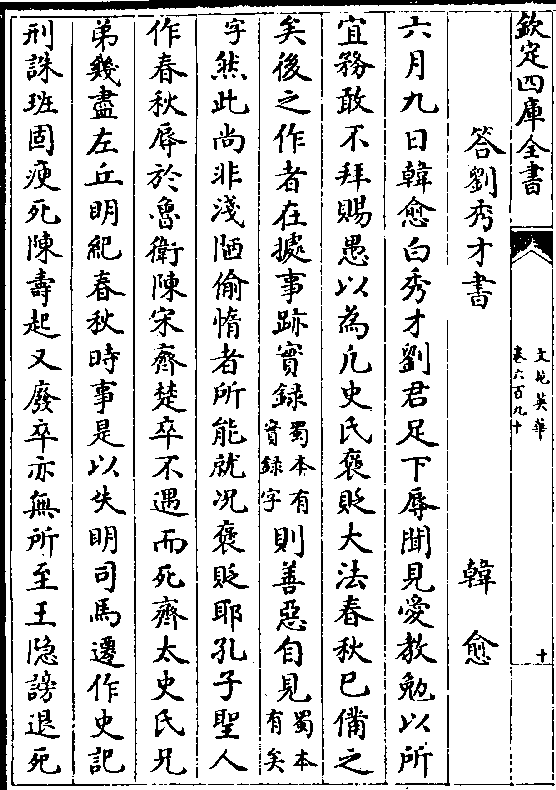 欽定四庫全書
文苑英華
卷六百九十
十
答劉秀才書 韓愈
六月九日韓愈白秀才劉君足下辱聞見愛教勉以所
宜務敢不拜賜愚以為凡史氏褒貶大法春秋已備之
矣後之作者在據事跡實録蜀本有實録字則善惡自見蜀本有矣
字然此尚非淺陋偷惰者所能就况褒貶耶孔子聖人
作春秋辱於魯衛陳宋齊楚卒不遇而死齊太史氏兄
弟幾盡左丘明紀春秋時事是以失明司馬遷作史記
刑誅班固瘐死陳壽起又廢卒亦無所至王隐謗退死